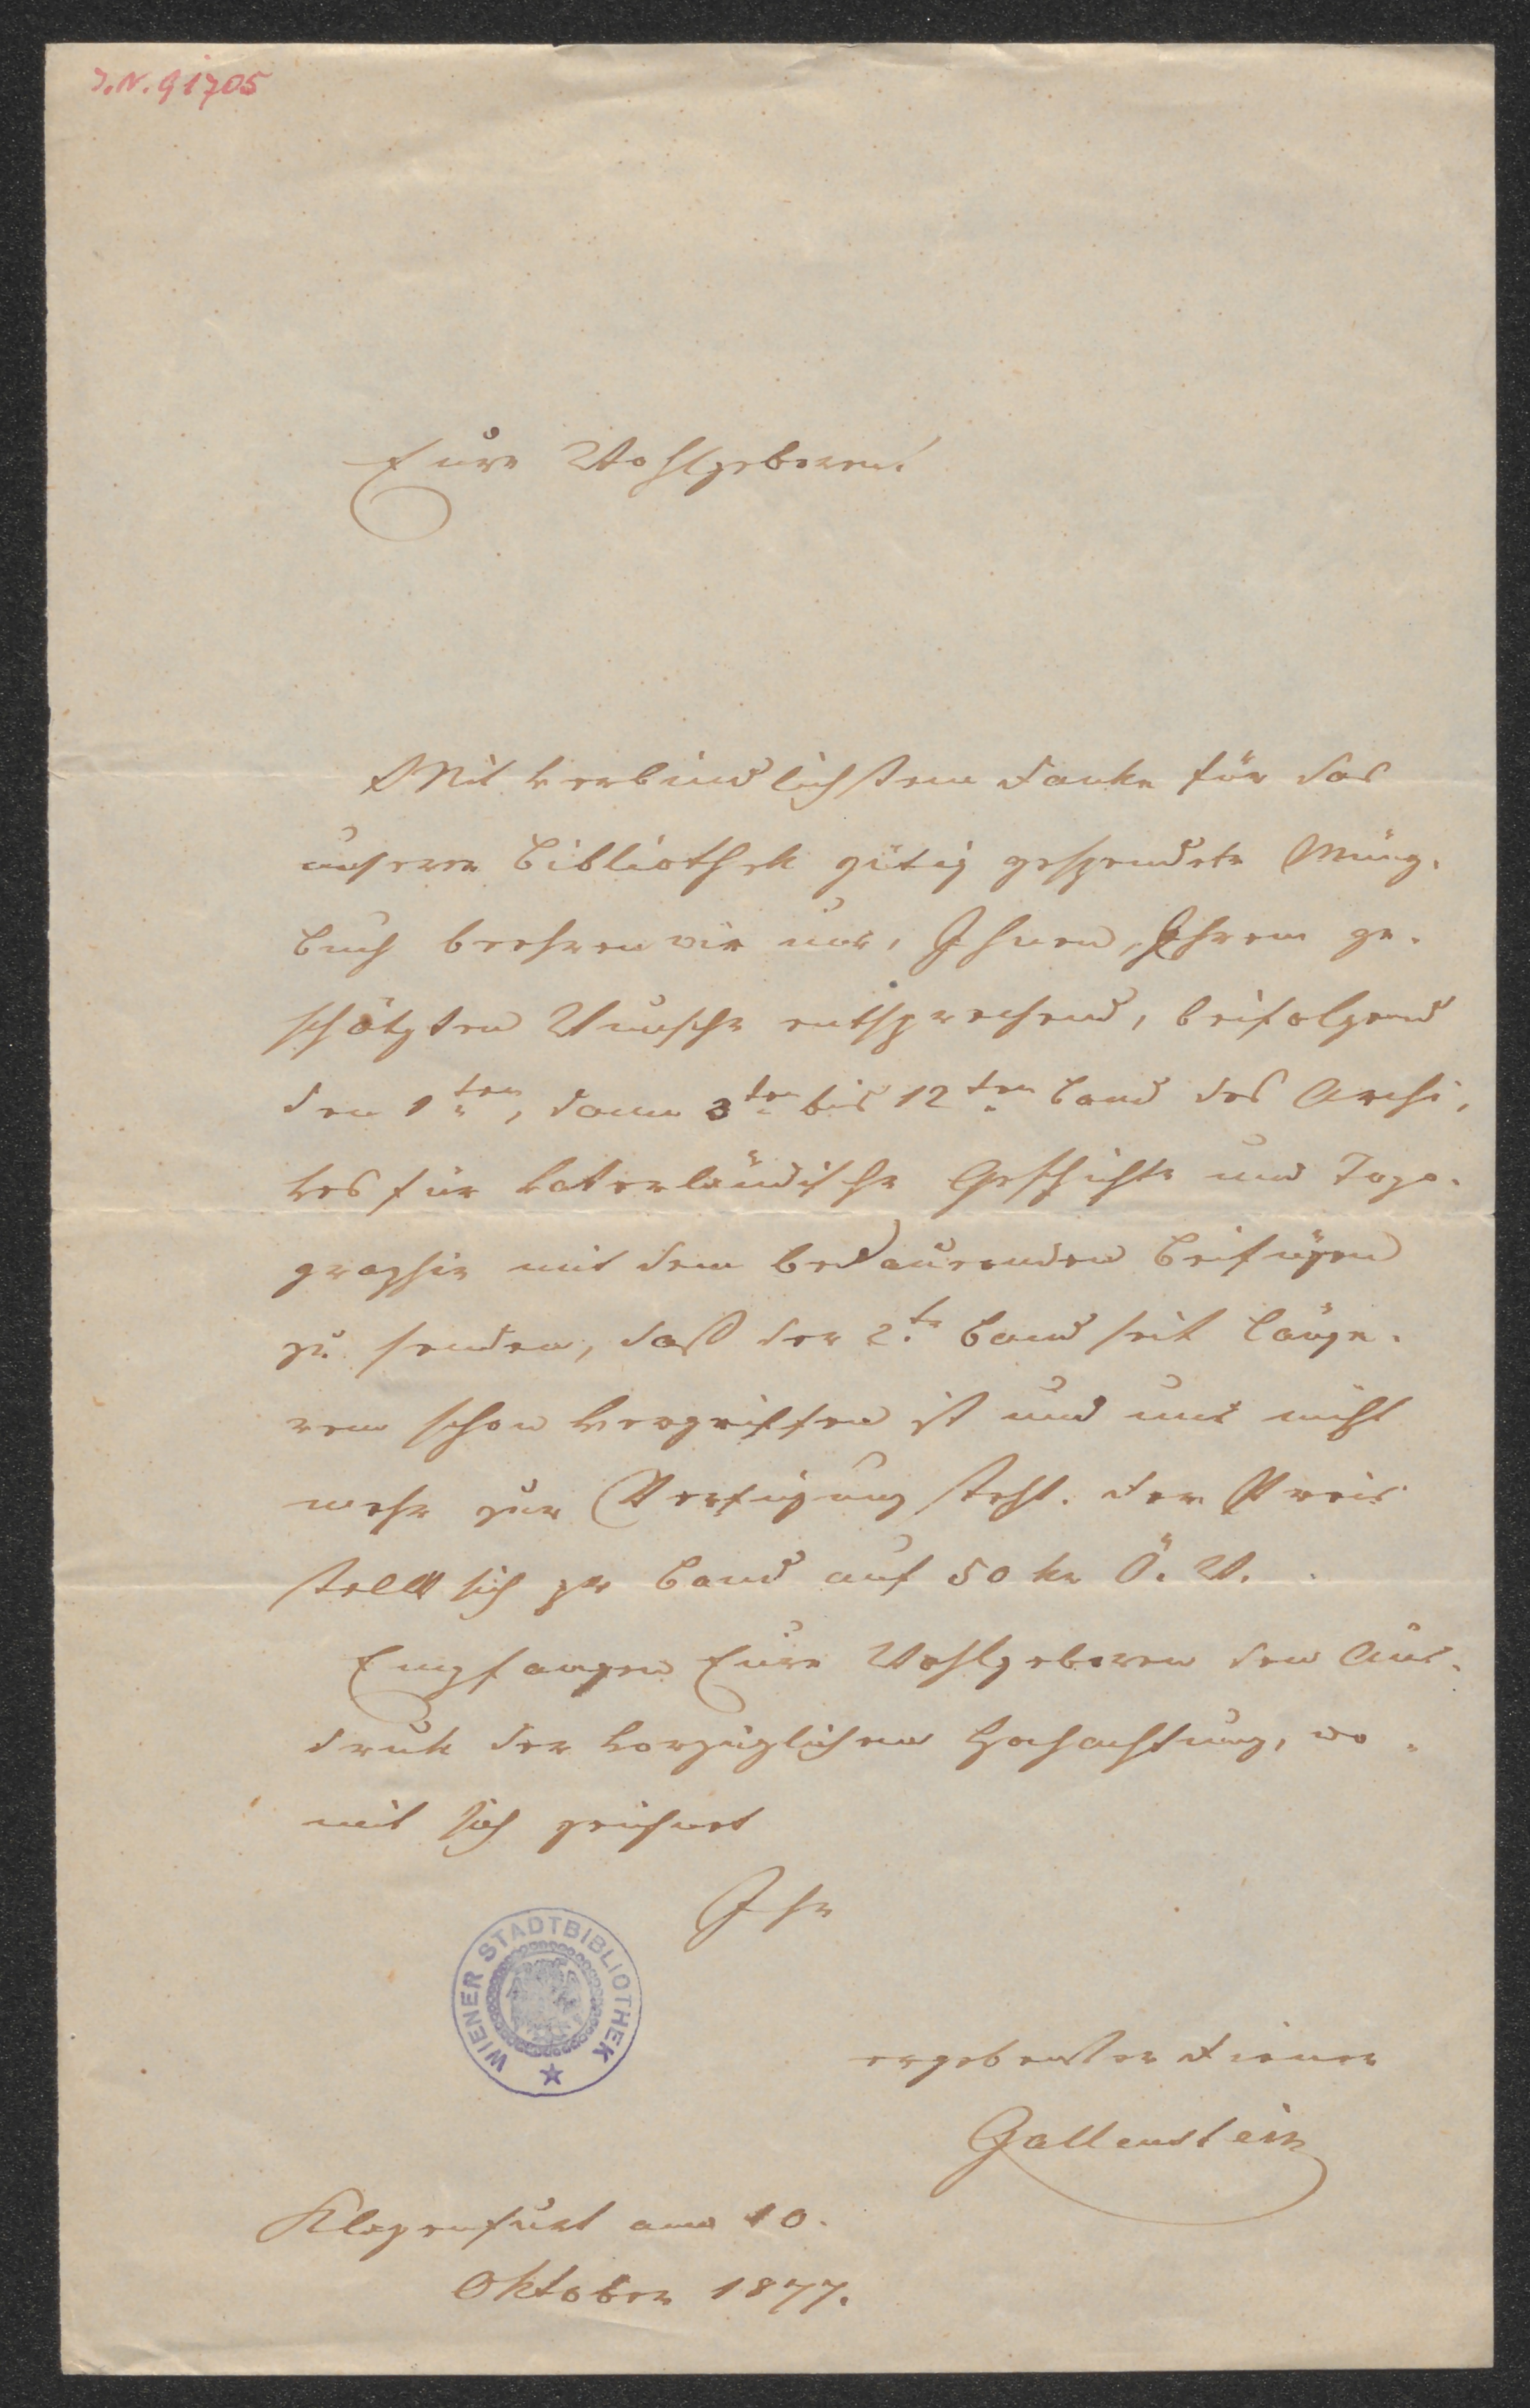 J.N. 91705
Eure Wohlgeboren!
Mit verbindlichstem Danke für das
unserer Bibliothek gütig gespendete Münz-
buch beehren wir uns, Ihnen, Ihrem ge-
schätzten Wunsche entsprechend, beifolgend
den 1ten, dann 3ten bis 12ten Band des Archi-
ves für vaterländische Geschichte und Topo-
graphie mit dem bedauernden Beifügen
zu senden, daß der 2te Band seit länge-
rem schon vergriffen ist und uns nicht
mehr zur Verfügung steht. Der Preis
stellt sich pr Band auf 50 kr Ö. W.
Empfangen Eure Wohlgeboren den Aus-
druk der vorzüglichen Hochachtung, wo-
mit sich zeichnet
Ihr
WIENER STADTBIBLIOTHEK
ergebenster Diener
Gallenstein
Klagenfurt am 10.
Oktober 1877.